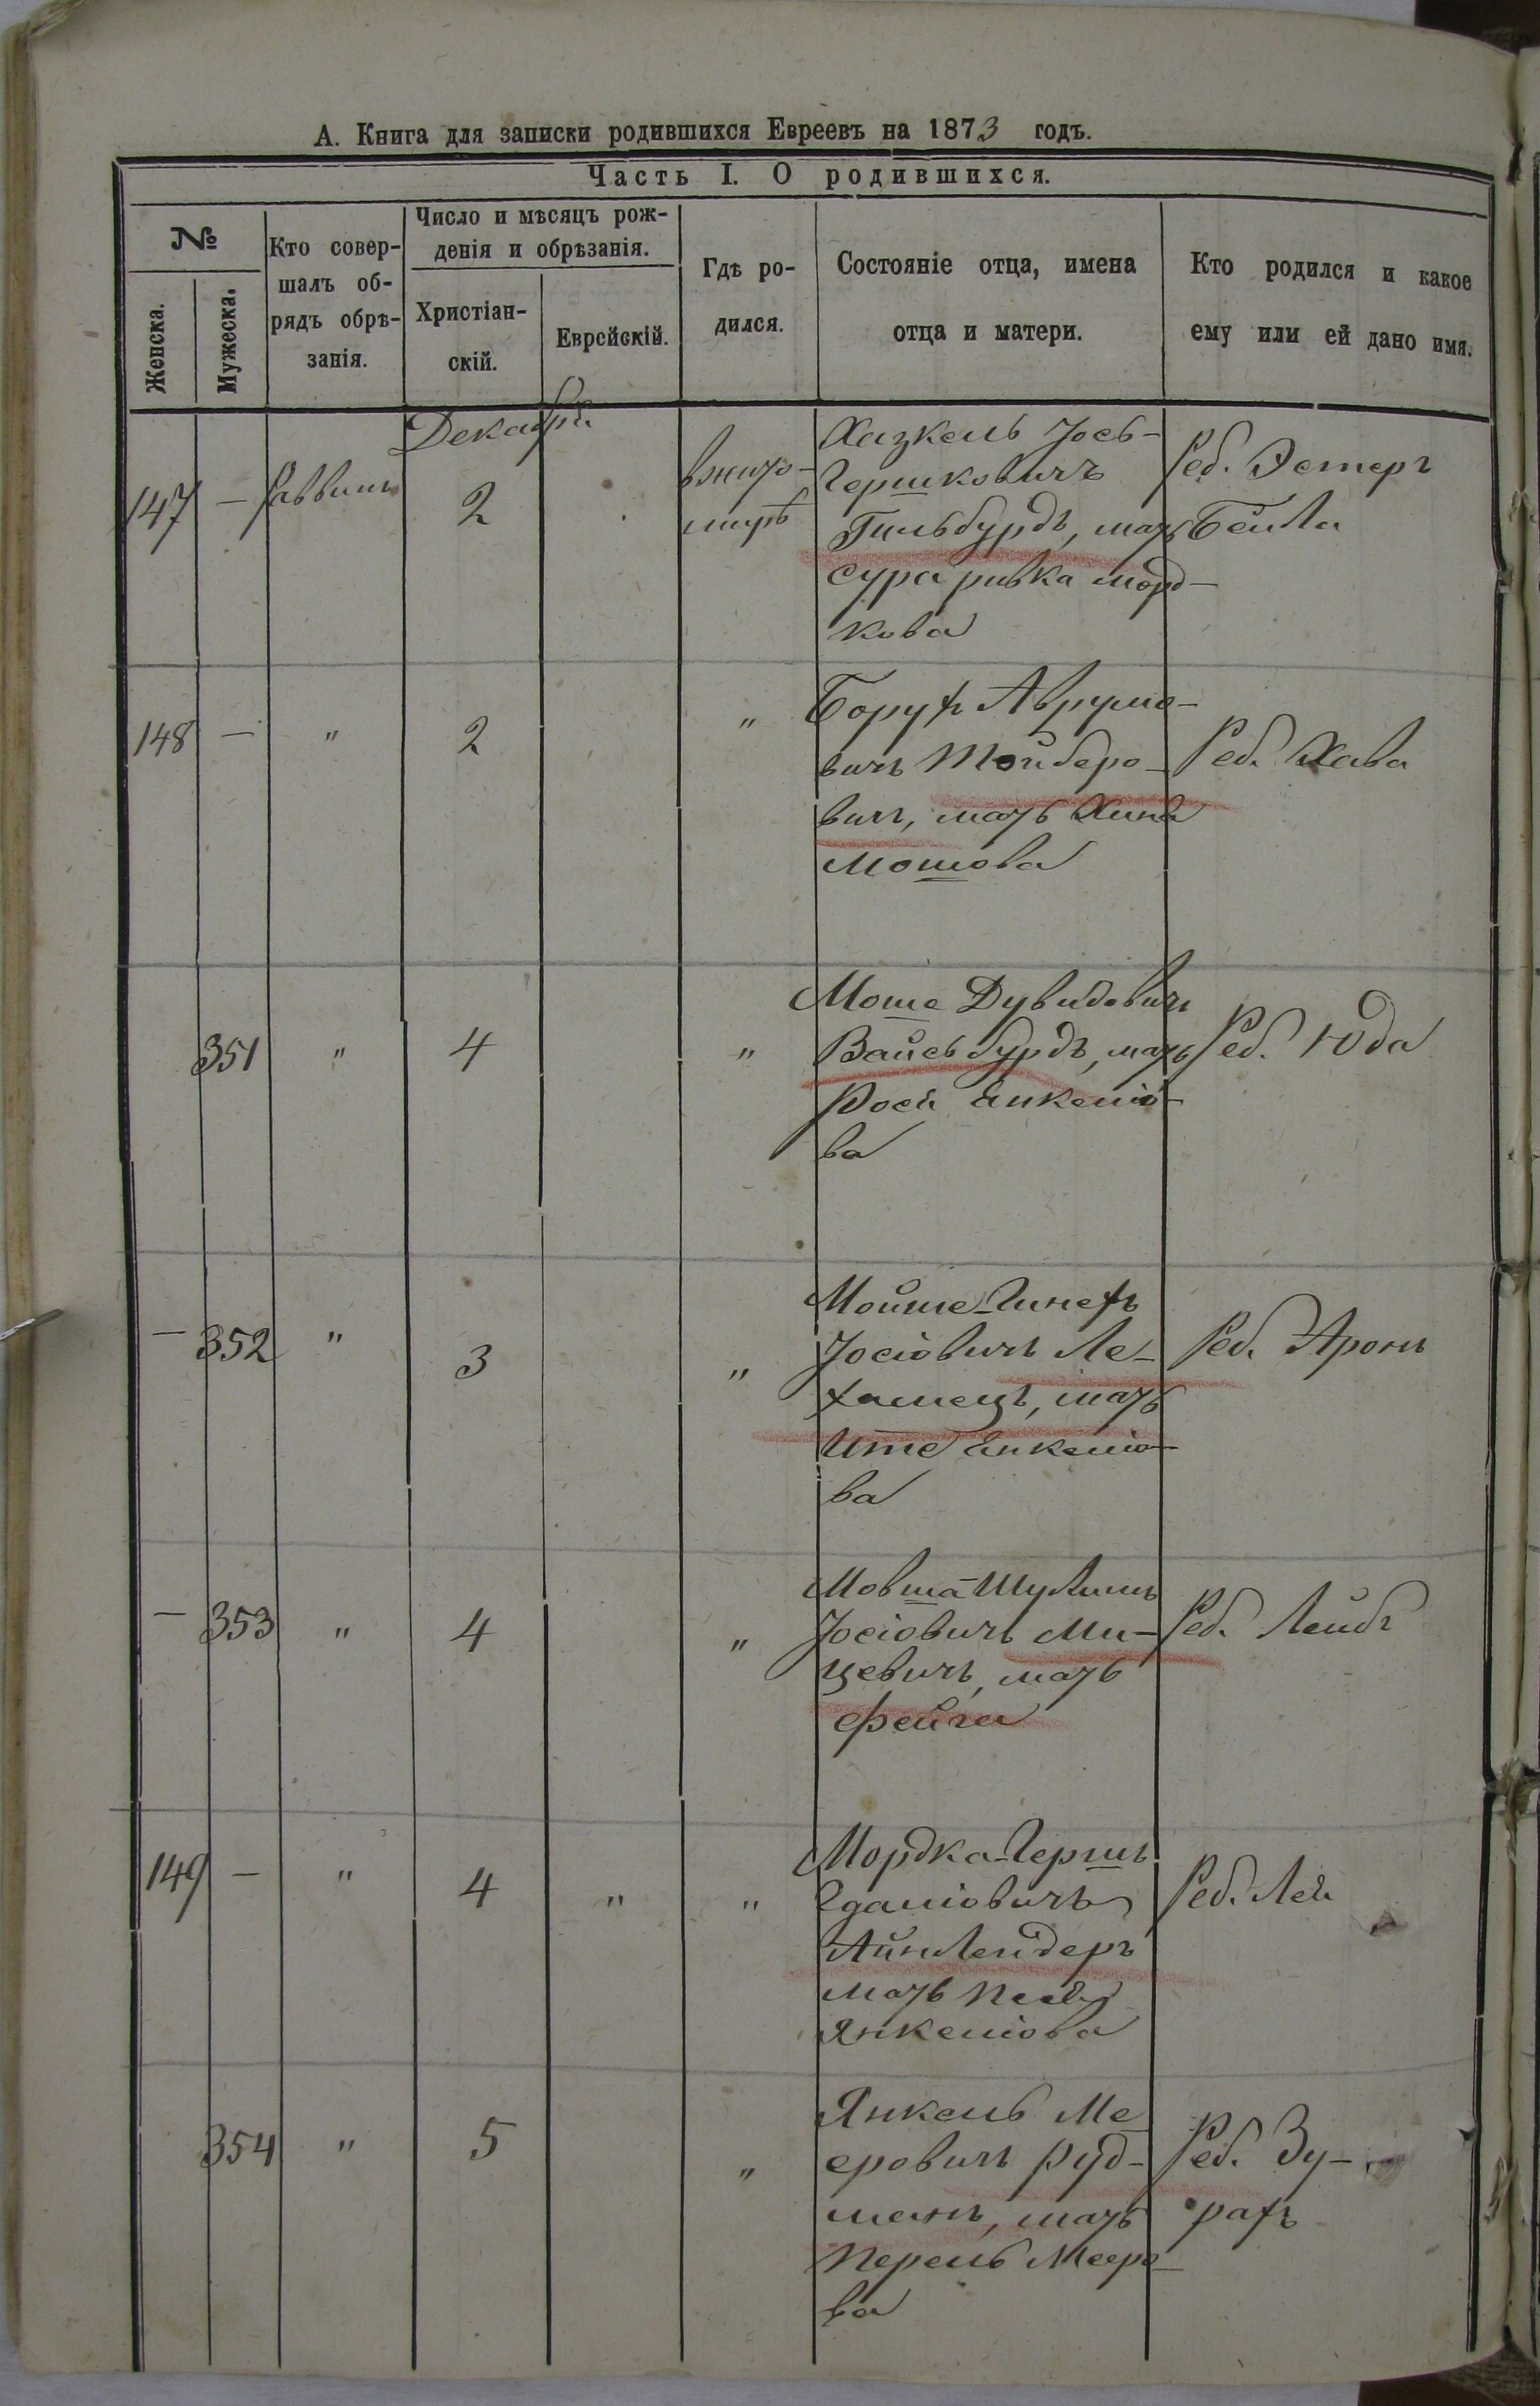 А. Книга для записки родившихся Евреевъ на 1873 годъ.
Часть I. О родившихся.
№
Женска.
Мужеска.
Кто совер-
шалъ об-
рядъ обрѣ-
занія.
Число и мѣсяцъ рож-
денія и обрѣзанія.
Христіан-
скій.
Еврейскій.
Гдѣ ро-
дился.
Состояніе отца, имена
отца и матери.
Кто родился и какое
ему или ей дано имя.
Декабря
147 — Раввинъ 2
вжито-
мирѣ
Хазкель Іось-
Гершковичъ
Гильбурдъ, мать
сура ривка морд-
кова
Реб. Эстеръ
Бейла
148 — " 2 "
Борухъ Аврумо-
вичъ Тойберо-
вичъ, мать Хина
Мошова
Реб. Хава
351 " 4 "
Моше Дувидовичъ
Вайсбурдъ, мать
Рося Янкеліо-
ва
Реб. Юда
— 352 " 3 "
Мойше-Пинехъ
Іосіовичъ Ле-
хамецъ, мать
Ите Янкеліо-
ва
Реб. Аронъ
— 353 " 4 "
Мовша-Шулимъ
Іосіовичъ Ми-
цевичъ, мать
фейга
Реб. Лейбъ
149 — " 4 " "
Мордка-Гершъ
Едаліовичъ
Айнлендеръ
мать Песя
Янкеліова
Реб. Лея
354 " 5 "
Янкель Ме
еровичъ Руд-
манъ, мать
Перель Меро-
ва
Реб. Зу-
рахъ